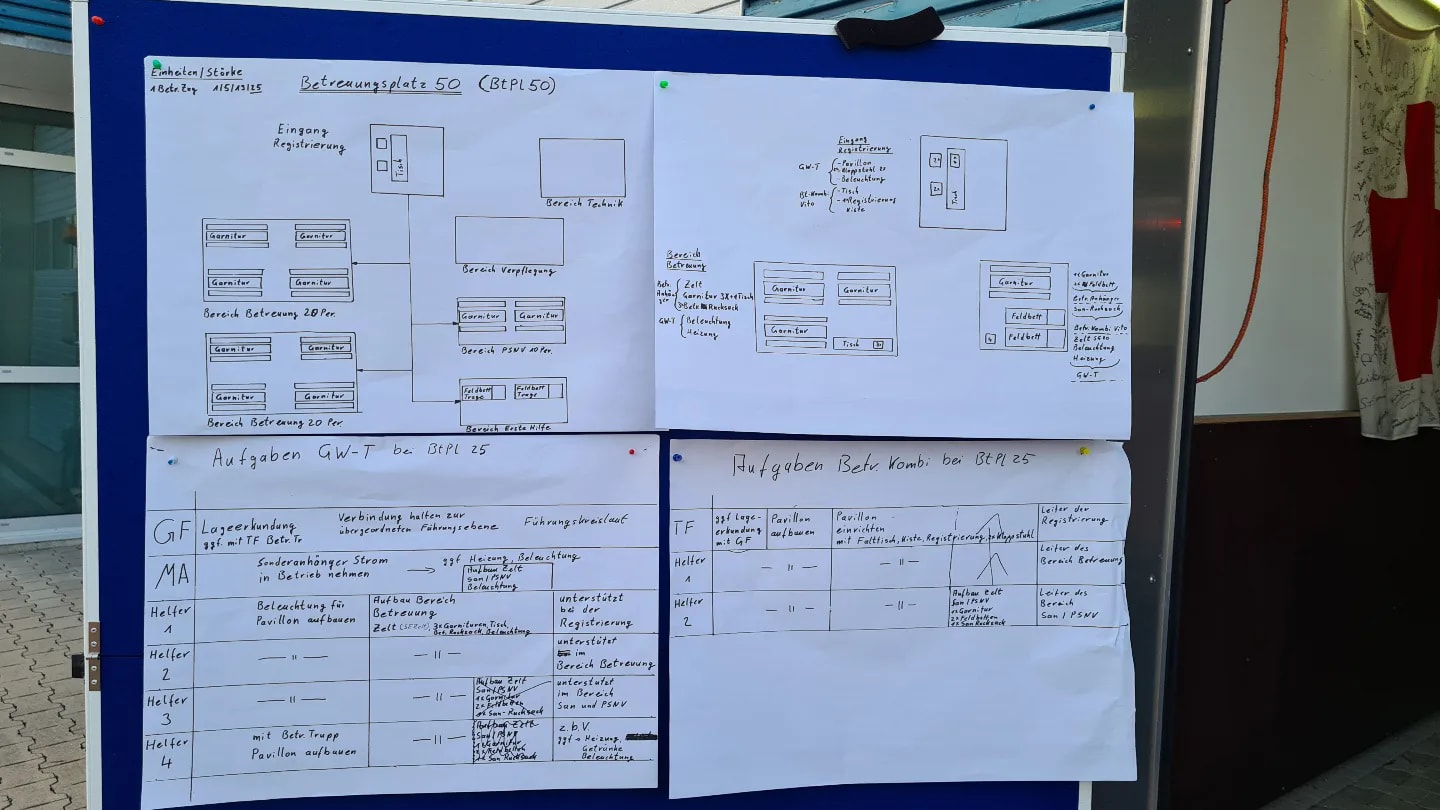 Einheiten/Stärke
1 Betr.Zug 1/5/19/25
Betreuungsplatz 50 (BtPl 50)
Eingang
Registrierung
Tisch
Bereich Technik
Garnitur Garnitur
Garnitur Garnitur
Bereich Betreuung 20 Per.
Bereich Verpflegung
Garnitur Garnitur
Bereich PSNV 10 Per.
Garnitur Garnitur
Garnitur Garnitur
Bereich Betreuung 20 Per.
Feldbett Feldbett
Trage Trage
Bereich Erste Hilfe
Eingang
Registrierung
GW-T
- Pavillon
Klappstuhl 2x
- Beleuchtung
Bt-Kombi
Vito
- Tisch
- Registrierung
Kiste
Tisch
Bereich
Betreuung
Betr.
Anhän
ger
Zelt
Garnitur 3X + Tisch
Betr. Rucksack
GW-T
Beleuchtung
Heizung
Garnitur Garnitur
Garnitur
Tisch
Garnitur
Feldbett
Feldbett
1x Garnitur
2x Feldbett
Betr. Anhänger
San-Rucksack
Betr. Kombi Vito
Zelt
Beleuchtung
Heizung
GW-T
Aufgaben GW-T bei BtPl 25
GF
Lageerkundung
ggf. mit TF Betr. Tr
Verbindung halten zur
übergeordneten Führungsebene
Führungskreislauf
MA
Sonderanhänger Strom
in Betrieb nehmen
→ ggf Heizung, Beleuchtung
Aufbau Zelt
San / PSNV
Beleuchtung
Helfer
1
Beleuchtung für
Pavillon aufbauen
Aufbau Bereich
Betreuung
Zelt 3x Garnituren, Tisch,
Bet. Rucksack, Beleuchtung
unterstützt
bei der
Registrierung
Helfer
2
— " —
— " —
unterstützt
im
Bereich Betreuung
Helfer
3
— " —
— " —
Aufbau Zelt
San / PSNV
1x Garnitur
2x Feldbetten
1x San-Rucksack
unterstützt
im Bereich
San und PSNV
Helfer
4
mit Betr. Trupp
Pavillon aufbauen
— " —
Aufbau Zelt
San / PSNV
1x Garnitur
2x Feldbetten
1x San Rucksack
z.b.V.
ggf → Heizung,
Getränke
Beleuchtung
Aufgaben Betr. Kombi bei BtPl 25
TF
ggf Lage-
erkundung
mit GF
Pavillon
aufbauen
Pavillon
einrichten
mit Falttisch, Kiste, Registrierung, 2x Klappstuhl
Leiter der
Registrierung
Helfer
1
— " —
— " —
Leiter des
Bereich Betreuung
Helfer
2
— " —
— " —
Aufbau Zelt
San / PSNV
1x Garnitur
2x Feldbetten
1x San Rucksack
Leiter des
Bereich
San / PSNV